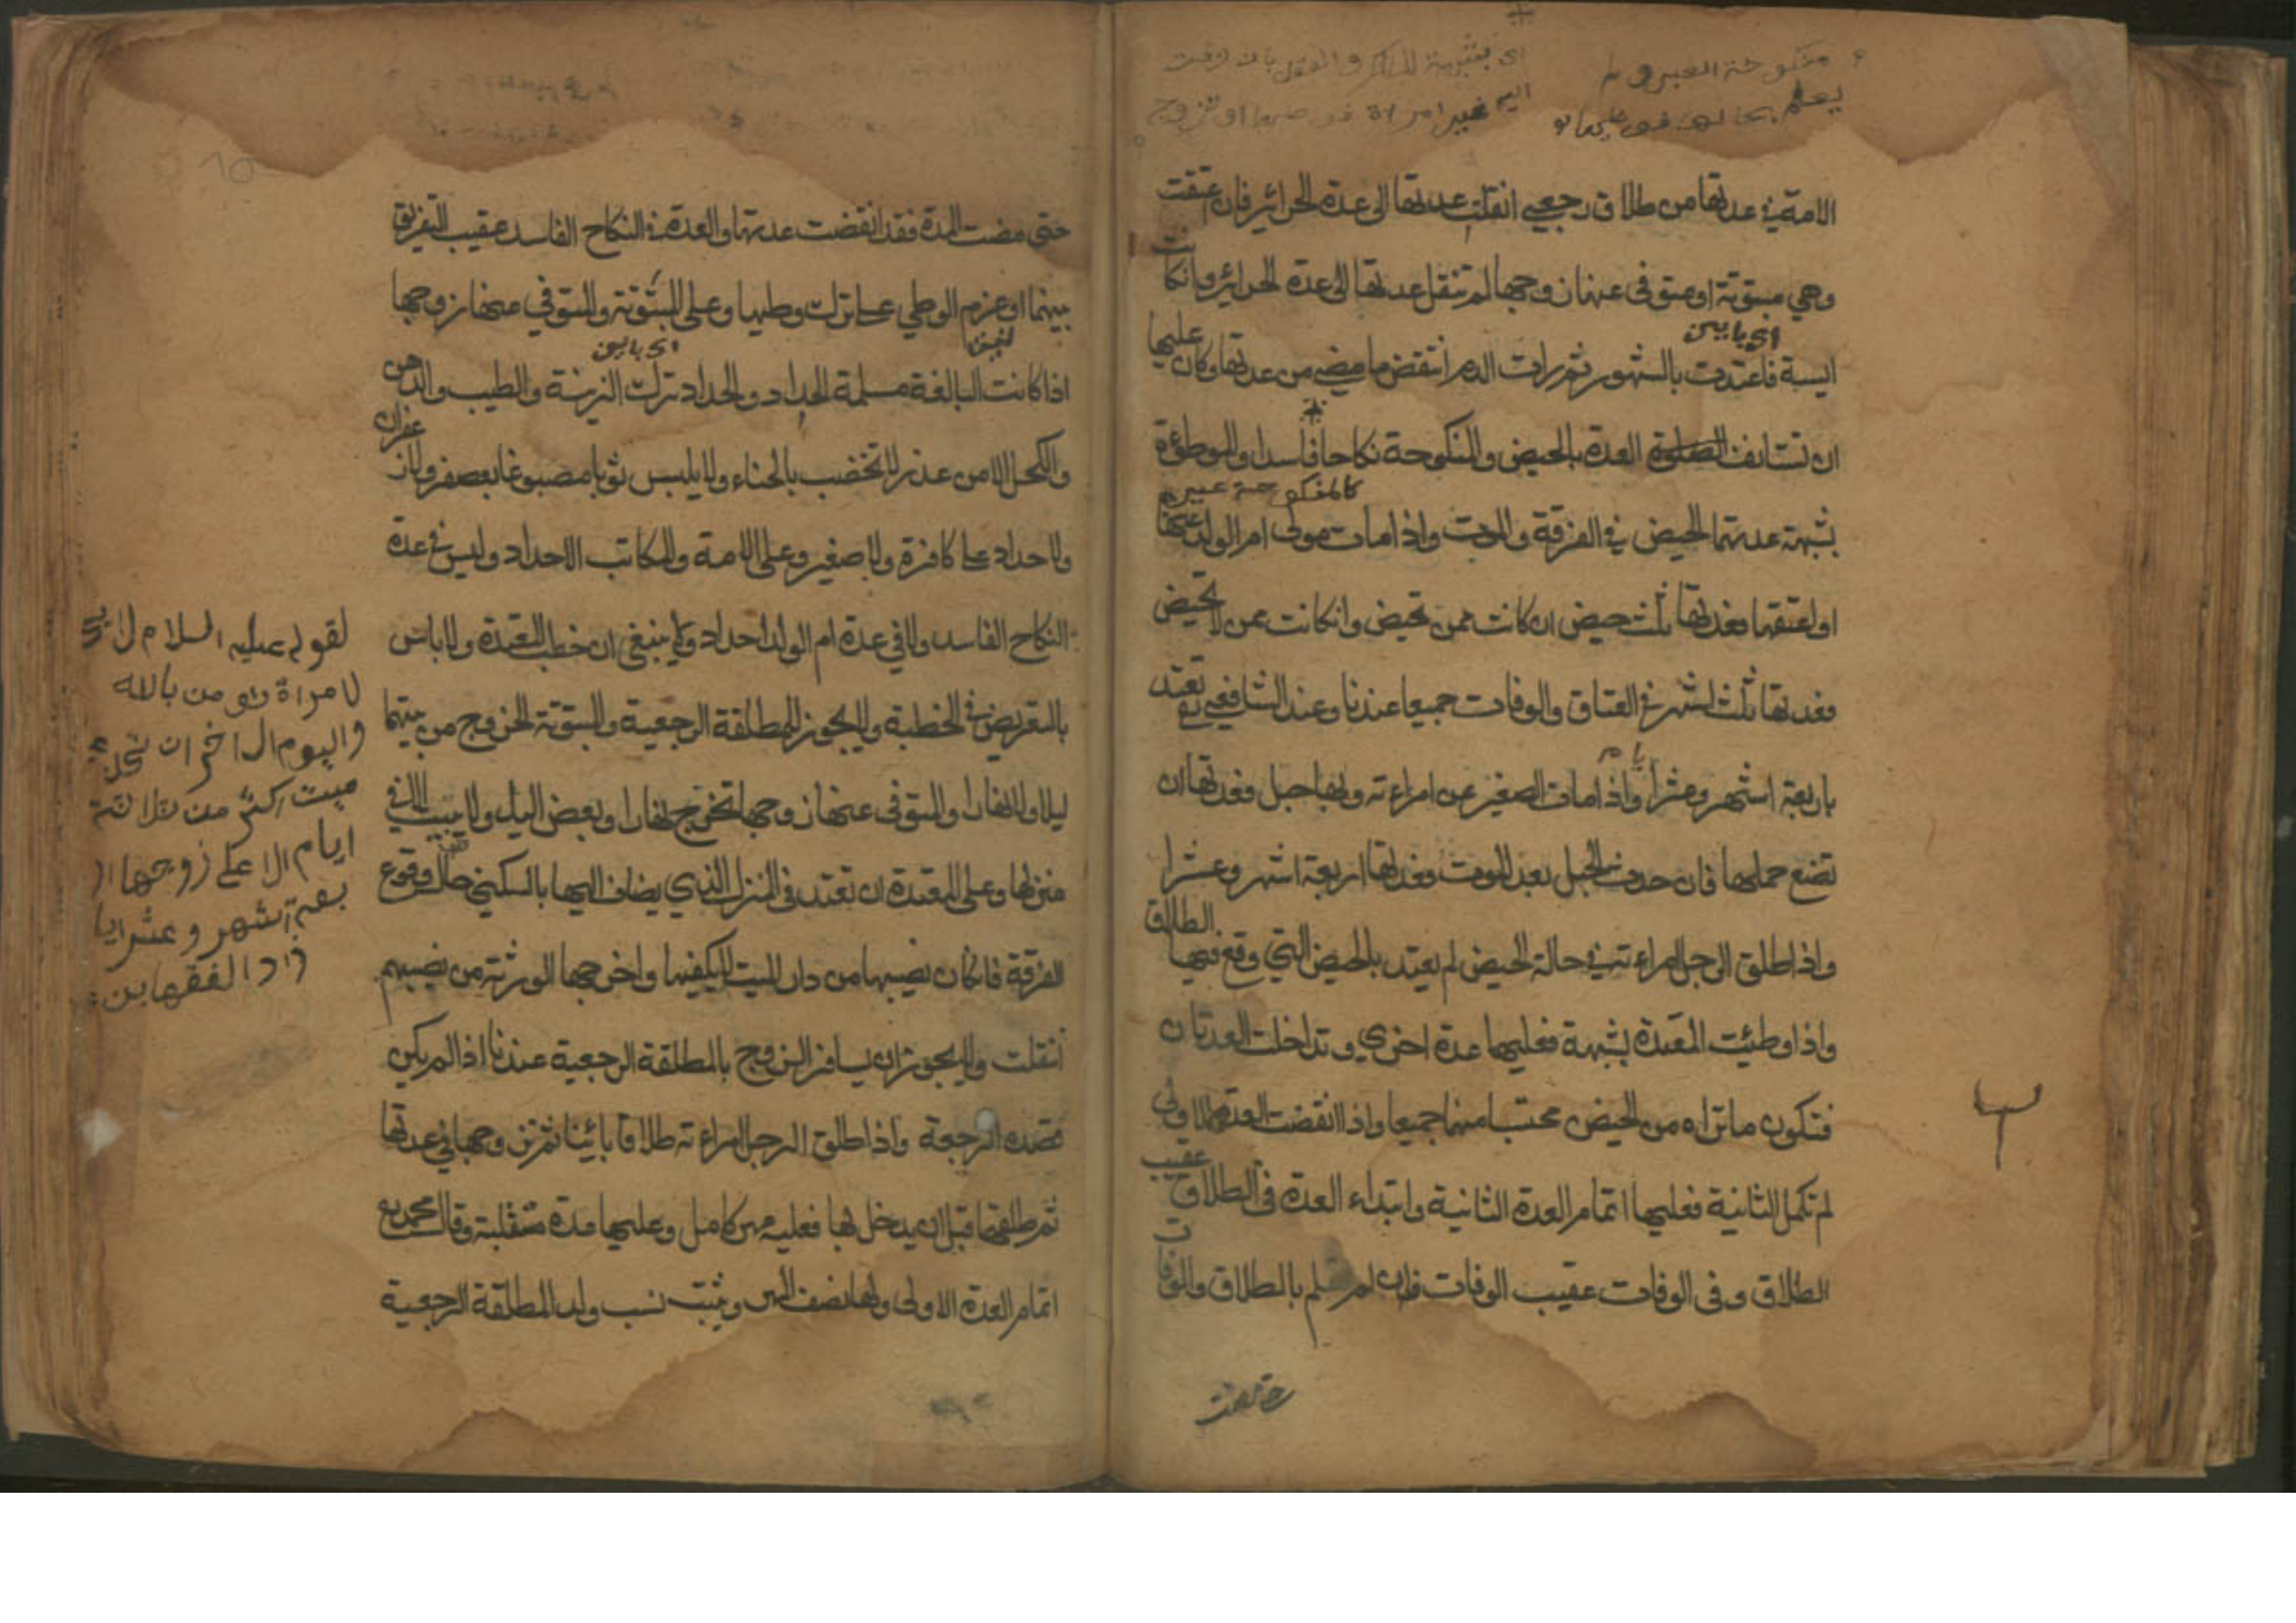 منكوحة الغير ولم
يعلم بحالها فوطيها
اى بشبهة الملك والعقد بان زفت
اليه غير امراة فوطيها او تزوج
الامة في عدتها من طلاق رجعي انتقلت عدتها الى عدة الحرائر فان اعتقت
وهي مبتوتة او متوفى عنها زوجها لم تنقل عدتها الى عدة الحرائر وان كانت
اى باين
ايسة فاعتدت بالشهور ثم رات الدم انتقض ما مضى من عدتها وكان عليها
ان تستانف العدة بالحيض والمنكوحة نكاحا فاسدا والموطوءة
كالمنكوحة غيره
بشبهة عدتهما الحيض في الفرقة والموت واذا مات مولى ام الولد عنها
او اعتقها فعدتها ثلث حيض ان كانت ممن تحيض وان كانت ممن لا تحيض
فعدتها ثلث اشهر في العتاق والوفات جميعا عندنا وعند الشافعي تعتد
باربعة اشهر وعشرا واذا مات الصغير عن امراءته وبها حبل فعدتها ان
تضع حملها فان حدث الحبل بعد الموت فعدتها اربعة اشهر وعشرا
واذا طلق الرجل امراءته في حالة الحيض لم يعتد بالحيض التي وقع فيها الطلاق
واذا وطئت المعتدة بشبهة فعليها عدة اخرى وتداخلت العدتان
فتكون ما تراه من الحيض محتسبا منها جميعا واذا انقضت العدة الاولى
لم تكمل الثانية فعليها اتمام العدة الثانية وابتداء العدة في الطلاق عقيب
الطلاق وفى الوفات عقيب الوفات فان لم تعلم بالطلاق والوفات
حتى مضت
حتى مضت المدة فقد انقضت عدتها والعدة في النكاح الفاسد عقيب التفريق
بينهما او عزم الوطي على ترك وطيها وعلى المبتوتة والمتوفي عنها زوجها
اى باين
اذا كانت البالغة مسلمة الحداد والحداد ترك الزينة والطيب والدهن
والكحل الا من عذر لا تخضب بالحناء ولا يلبس ثوبا مصبوغا بعصفر ولا زعفران
ولا حداد على كافرة ولا صغير وعلى الامة والمكاتب الاحداد وليس في عدة
النكاح الفاسد ولا في عدة ام الولد احداد ولا ينبغى ان خطب المعتدة ولا باس
بالتعريض في الخطبة ولا يجوز للمطلقة الرجعية والمبتوتة الخروج من بيتها
ليلا ولا نهارا والمتوفى عنها زوجها تخرج نهارا وبعض اليل ولا يبيت الا في
منزلها وعلى المعتدة ان تعتد فى المنزل الذي يضاف اليها بالسكنى حال وقوع
الفرقة فان كان نصيبها من دار الميت لا يكفيها واخرجها الورثة من نصيبهم
انتقلت ولا يجوز ان يسافر الزوج بالمطلقة الرجعية عندنا اذا لم يكن
قصده الرجعة واذا طلق الرجل امراءته طلاقا بائينا ثم تزوجها في عدتها
ثم طلقها قبل ان يدخل بها فعليه مهر كامل وعليها عدة مستقلبة وقال محمد
اتمام العدة الاولى ولها نصف المهر ويثبت نسب ولد المطلقة الرجعية
لقوله عليه السلام لا يحل
لامراة تؤمن بالله
واليوم الاخر ان تحد على
ميت اكثر من ثلاثة
ايام الا على زوجها ار
بعة اشهر وعشر ايا
زاد الفقهاء